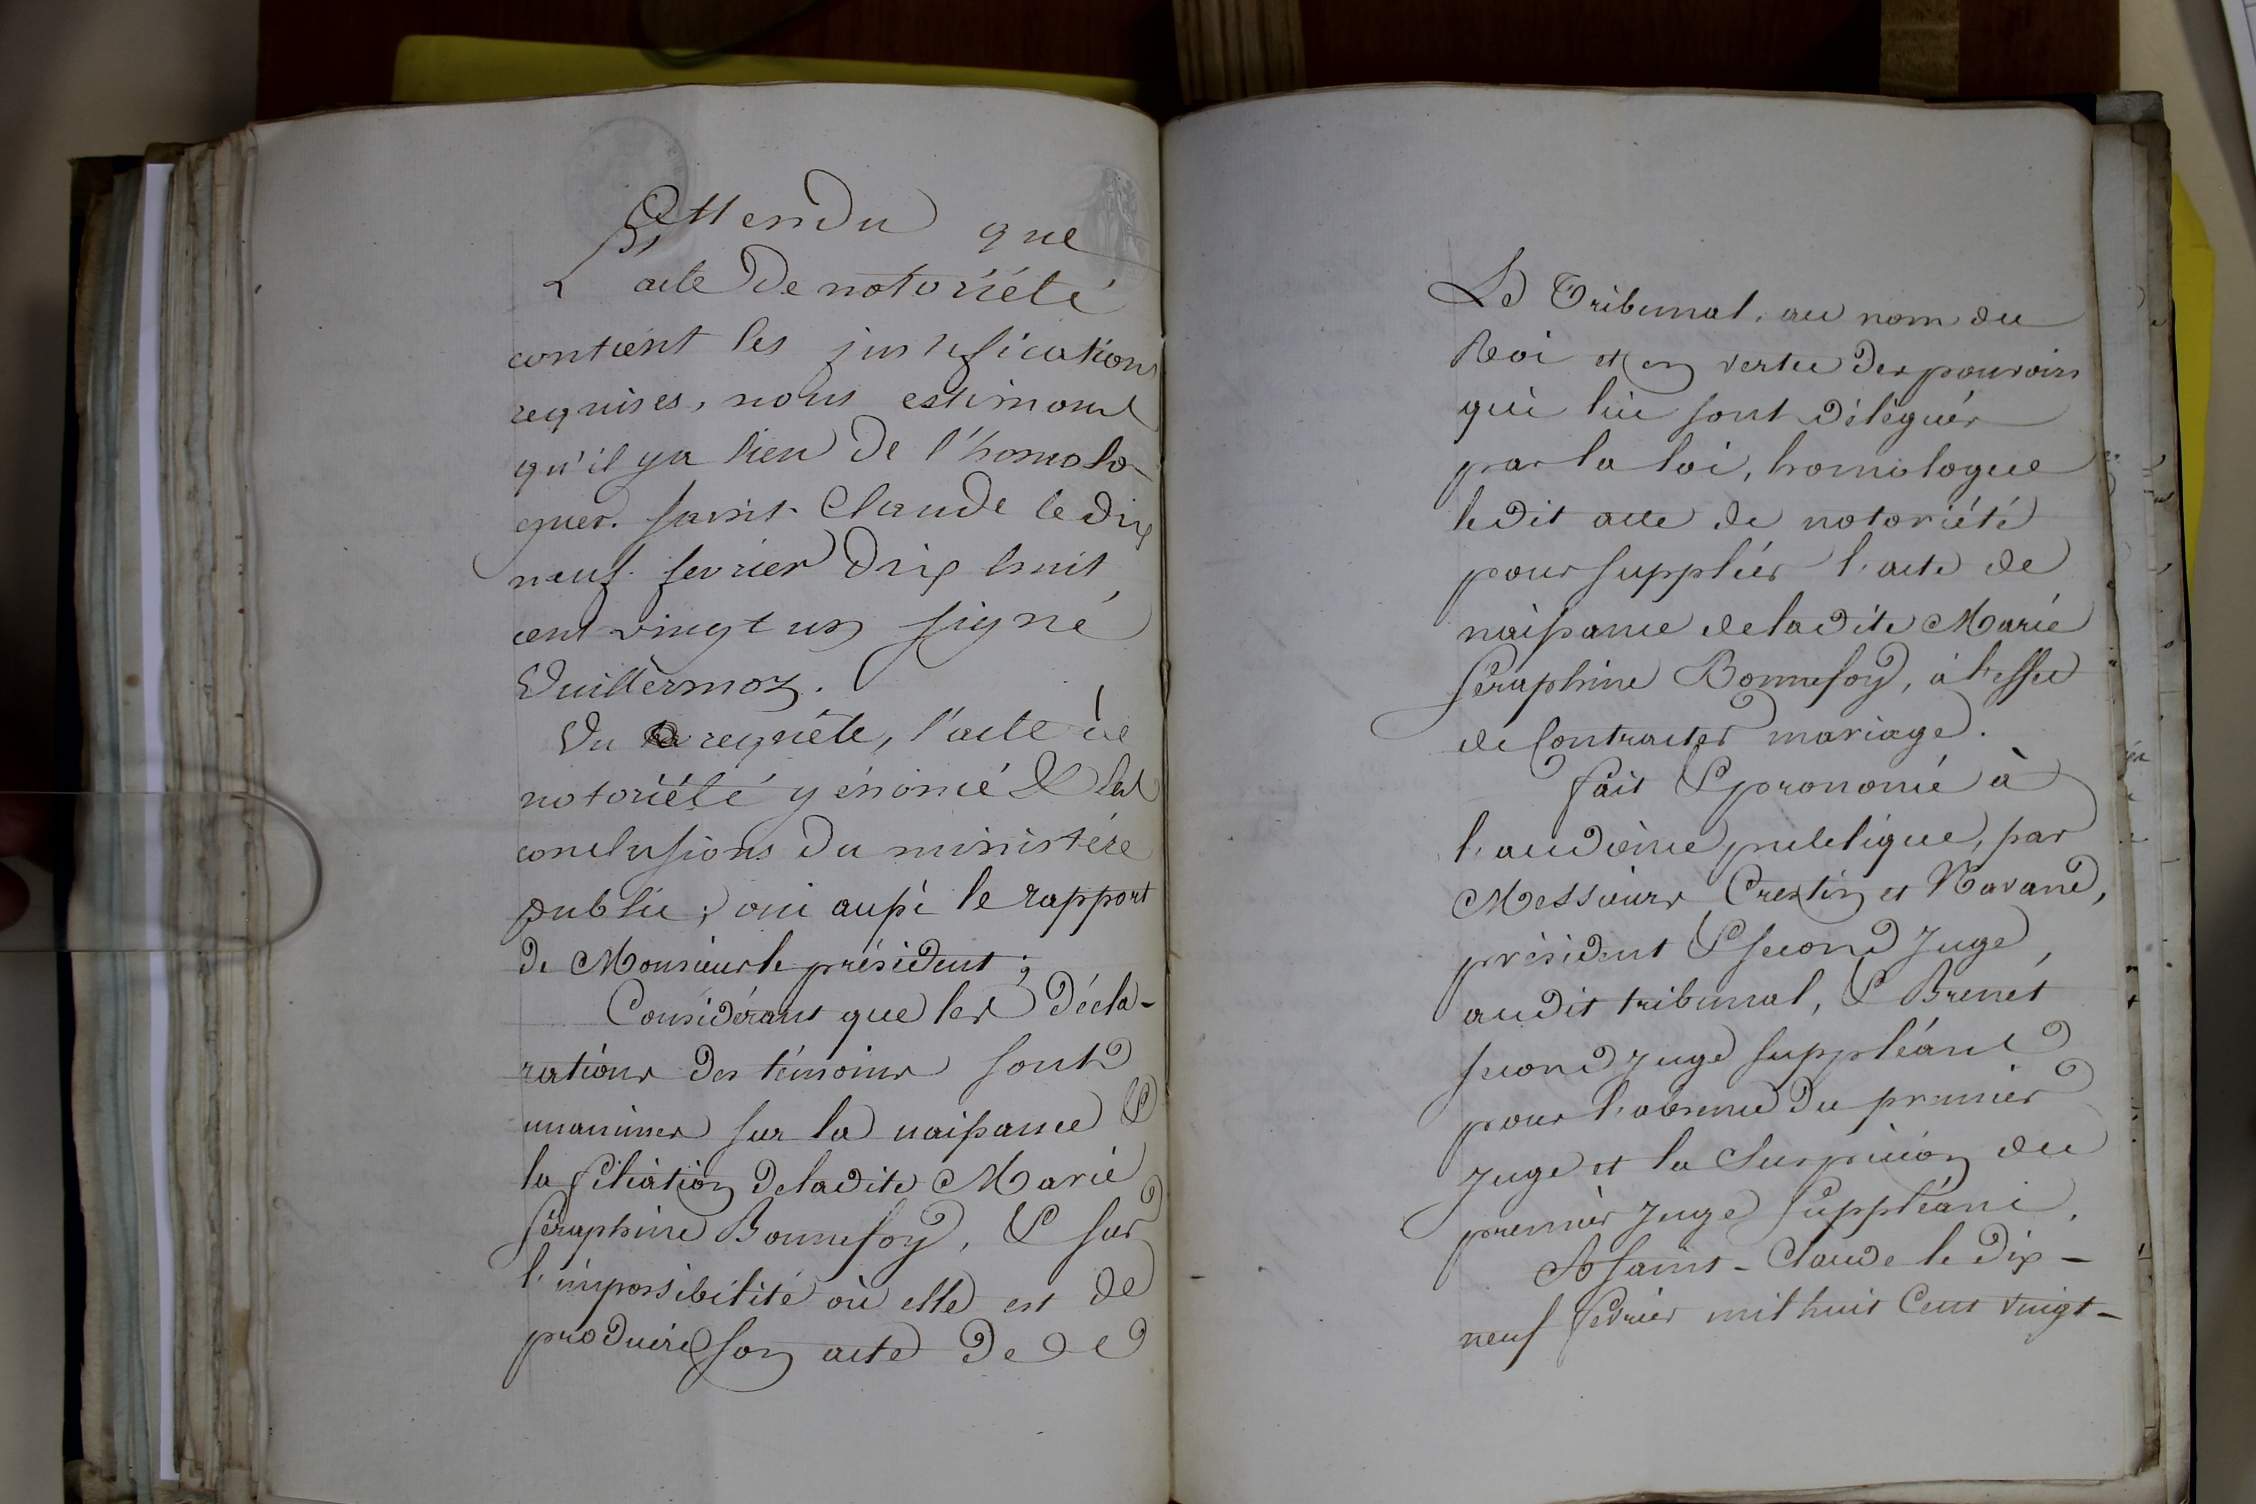 Attendu que
L'acte de notoriété
contient les justifications
requises, nous estimons
qu'il y a lieu de l'homolo-
guer. Saint-Claude le dix
neuf fevrier dix huit
cent vingt un signé
Vuillermoz.
Vu la requête, l'acte de
notoriété y énoncé & les
conclusions du ministère
public; oui aussi le rapport
de Monsieur le président;
Considérant que les décla-
rations des témoins sont
unanimes sur la naissance &
la filiation de ladite Marie
Séraphine Bonnefoy, & sur
l'impossibilité où elle est de
produire son acte de
Le Tribunal, au nom du
Roi et en vertu des pouvoirs
qui lui sont délégués
par la loi, homologue
ledit acte de notoriété
pour suppléer l'acte de
naissance de ladite Marie
Séraphine Bonnefoy, à l'effet
de Contracter mariage.
fait & prononcé à
l'audience publique, par
Messieurs Crestin et
président & second Juge,
audit tribunal, & Brenet
second juge suppléant
pour l'absence du premier
juge et la Suspicion du
premier juge Suppléant.
A Saint-Claude le dix-
neuf fevrier mil huit Cent vingt-